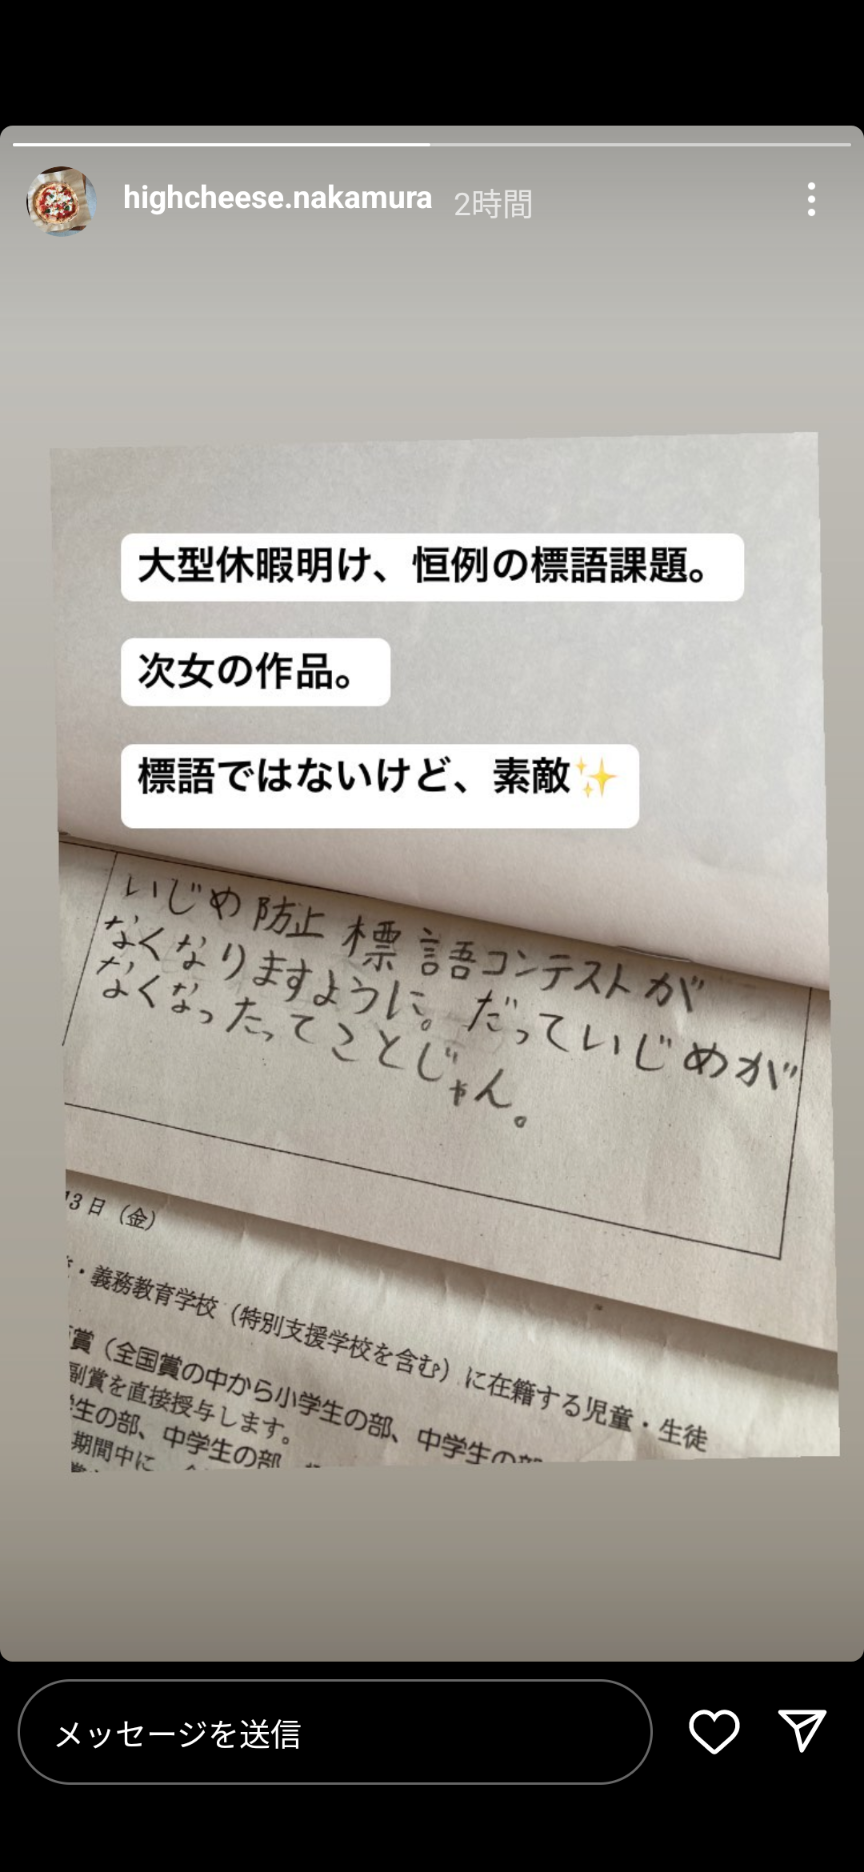 highcheese.nakamura 2時間
大型休暇明け、恒例の標語課題。
次女の作品。
標語ではないけど、素敵✨
いじめ防止標語コンテストが
なくなりますように。だっていじめが
なくなったってことじゃん。
13日(金)
・義務教育学校(特別支援学校を含む)に在籍する児童・生徒
賞(全国賞の中から小学生の部、中学生の
副賞を直接授与します。
生の部、中学生の部
期間中に
メッセージを送信